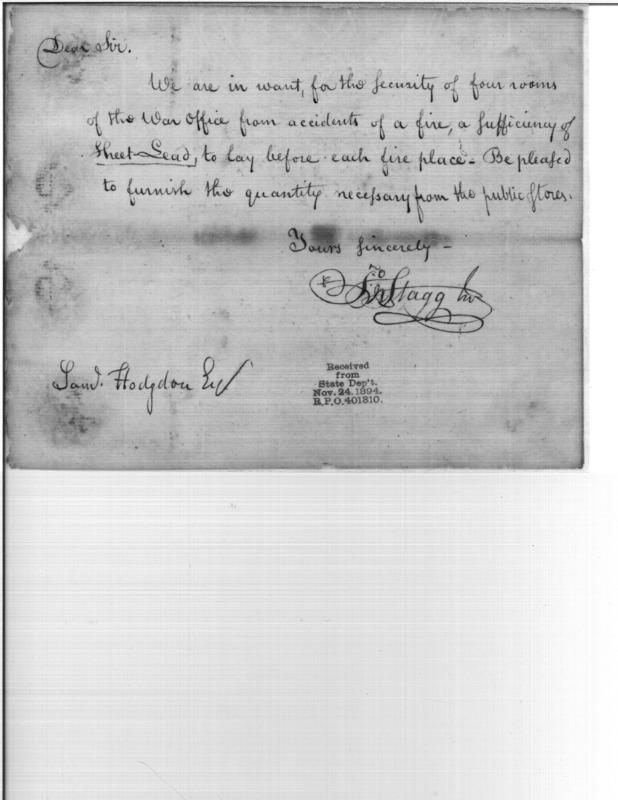 Dear Sir.
We are in want, for the security of four rooms
of the War Office from accidents of a fire, a sufficiency of
Sheet-Lead, to lay before each fire place - Be pleased
to furnish the quantity necessary from the public Stores.
Yours sincerely -
Stagg Junr
Saml. Hodgdon Esqr
Received
from
State Dep't.
Nov. 24, 1894.
R.P.O. 401810.